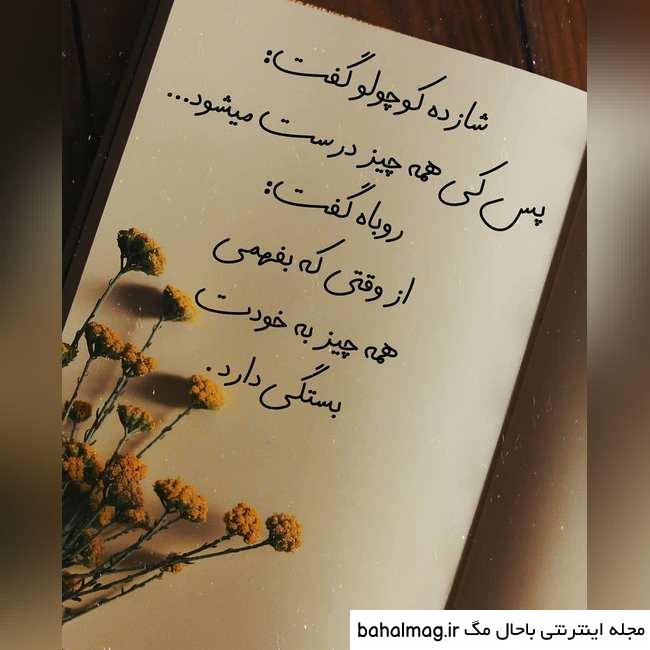 شازده کوچولو گفت:
پس کی همه چیز درست میشود...
روباه گفت:
از وقتی که بفهمی
همه چیز به خودت
بستگی دارد.
مجله اینترنتی باحال مگ bahalmag.ir